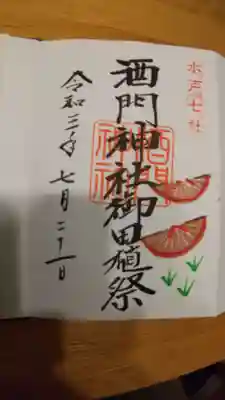 水戸七社
酒門神社御田植祭
令和三年七月二十一日
酒門
神社